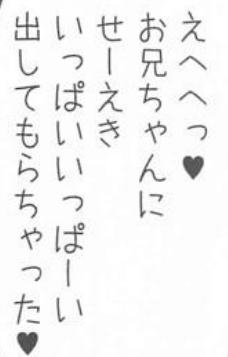 えへへっ♥
お兄ちゃんに
せーえき
いっぱいいっぱーい
出してもらちゃった♥